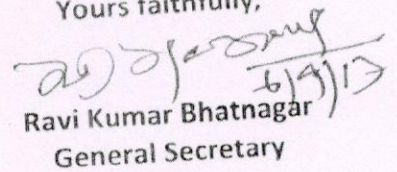 Yours faithfully,
6/9/13
Ravi Kumar Bhatnagar
General Secretary